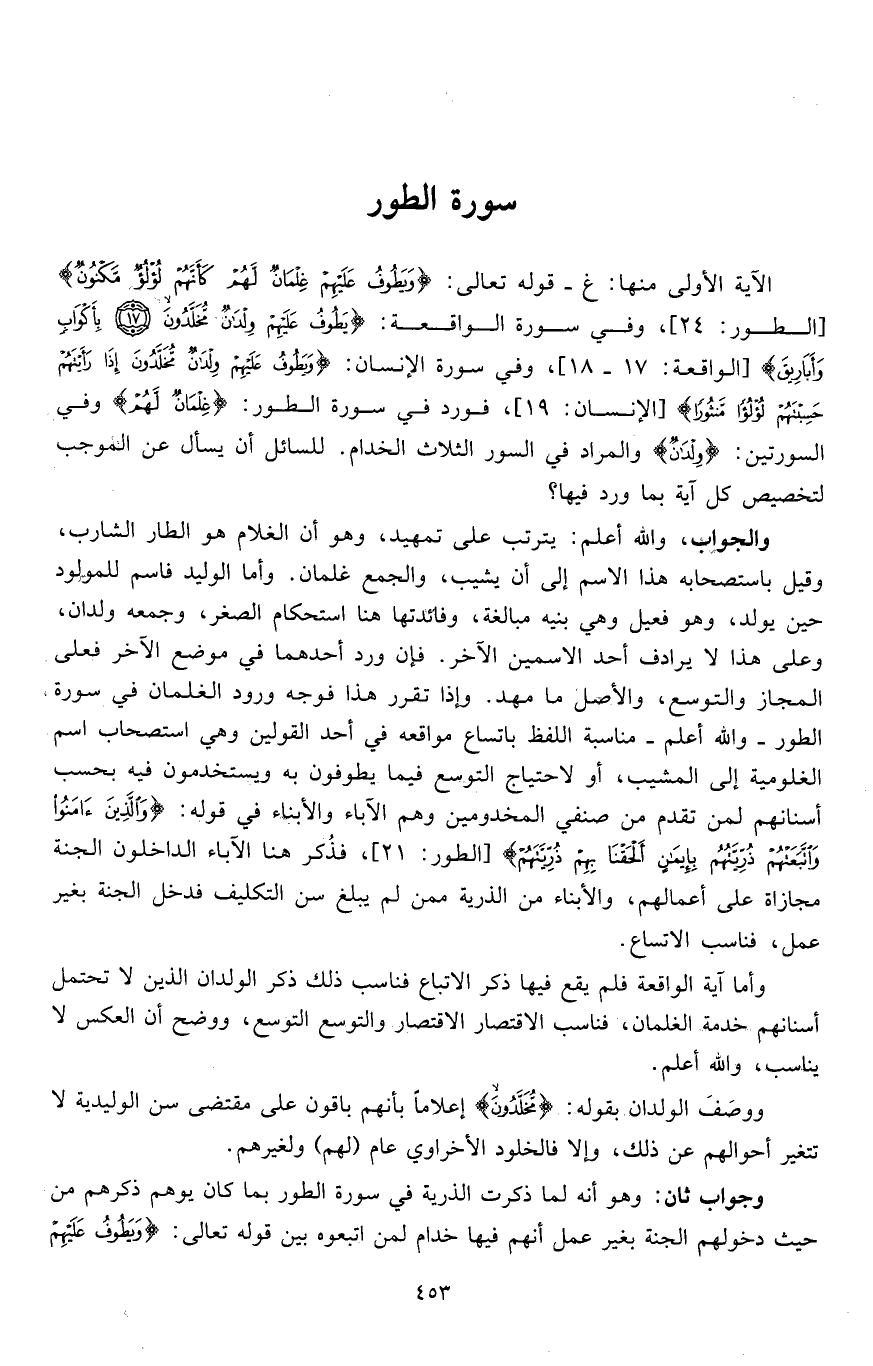 سورة الطور
الآية الأولى منها: غ ـ قوله تعالى: ﴿وَيَطُوفُ عَلَيْهِمْ غِلْمَانٌ لَّهُمْ كَأَنَّهُمْ لُؤْلُؤٌ مَّكْنُونٌ﴾
[الـطـور: ٢٤]، وفـي سـورة الـواقـعـة: ﴿يَطُوفُ عَلَيْهِمْ وِلْدَانٌ مُّخَلَّدُونَ ۙ (١٧) بِأَكْوَابٍ
وَأَبَارِيقَ﴾ [الواقعة: ١٧ ـ ١٨]، وفي سورة الإنسان: ﴿وَيَطُوفُ عَلَيْهِمْ وِلْدَانٌ مُّخَلَّدُونَ إِذَا رَأَيْتَهُمْ
حَسِبْتَهُمْ لُؤْلُؤًا مَّنثُورًا﴾ [الإنسان: ١٩]، فورد في سورة الطور: ﴿غِلْمَانٌ لَّهُمْ﴾ وفي
السورتين: ﴿وِلْدَانٌ﴾ والمراد في السور الثلاث الخدام. للسائل أن يسأل عن الموجب
لتخصيص كل آية بما ورد فيها؟
والجواب، والله أعلم: يترتب على تمهيد، وهو أن الغلام هو الطار الشارب،
وقيل باستصحابه هذا الاسم إلى أن يشيب، والجمع غلمان. وأما الوليد فاسم للمولود
حين يولد، وهو فعيل وهي بنيه مبالغة، وفائدتها هنا استحكام الصغر، وجمعه ولدان،
وعلى هذا لا يرادف أحد الاسمين الآخر. فإن ورد أحدهما في موضع الآخر فعلى
المجاز والتوسع، والأصل ما مهد. وإذا تقرر هذا فوجه ورود الغلمان في سورة
الطور ـ والله أعلم ـ مناسبة اللفظ باتساع مواقعه في أحد القولين وهي استصحاب اسم
الغلومية إلى المشيب، أو لاحتياج التوسع فيما يطوفون به ويستخدمون فيه بحسب
أسنانهم لمن تقدم من صنفي المخدومين وهم الآباء والأبناء في قوله: ﴿وَالَّذِينَ ءَامَنُوا
وَاتَّبَعَتْهُمْ ذُرِّيَّتُهُم بِإِيمَانٍ أَلْحَقْنَا بِهِمْ ذُرِّيَّتَهُمْ﴾ [الطور: ٢١]، فذُكر هنا الآباء الداخلون الجنة
مجازاة على أعمالهم، والأبناء من الذرية ممن لم يبلغ سن التكليف فدخل الجنة بغير
عمل، فناسب الاتساع.
وأما آية الواقعة فلم يقع فيها ذكر الاتباع فناسب ذلك ذكر الولدان الذين لا تحتمل
أسنانهم خدمة الغلمان، فناسب الاقتصار الاقتصار والتوسع التوسع، ووضح أن العكس لا
يناسب، والله أعلم.
ووصَفَ الولدان بقوله: ﴿مُّخَلَّدُونَ ۙ﴾ إعلاماً بأنهم باقون على مقتضى سن الوليدية لا
تتغير أحوالهم عن ذلك، وإلا فالخلود الأخراوي عام (لهم) ولغيرهم.
وجواب ثان: وهو أنه لما ذكرت الذرية في سورة الطور بما كان يوهم ذكرهم من
حيث دخولهم الجنة بغير عمل أنهم فيها خدام لمن اتبعوه بين قوله تعالى: ﴿وَيَطُوفُ عَلَيْهِمْ
٤٥٣